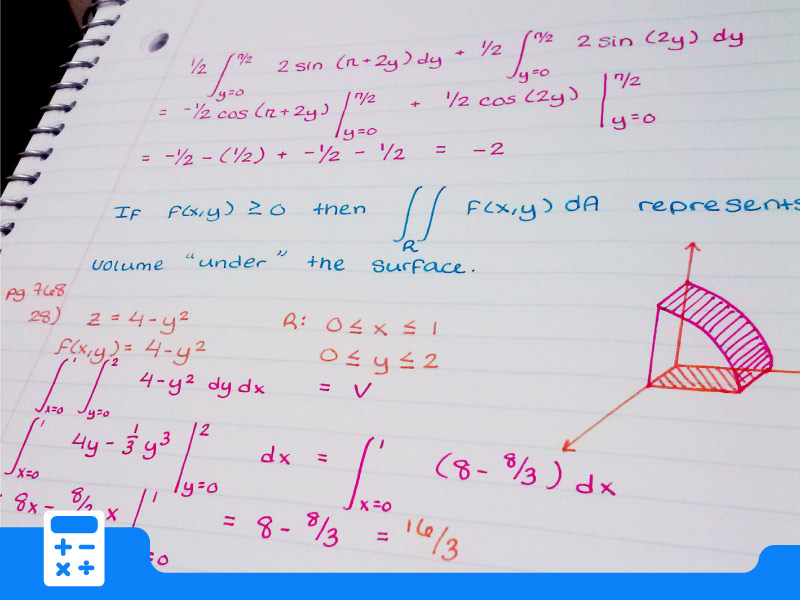 1/2 ∫y=0^π/2 2 sin (π+2y) dy + 1/2 ∫y=0^π/2 2 sin (2y) dy
= -1/2 cos (π+2y) |y=0^π/2 + 1/2 cos (2y) |y=0^π/2
= -1/2 - (1/2) + -1/2 - 1/2 = -2
IF F(x,y) ≥ 0 then ∫∫R F(x,y) dA represents
volume "under" the surface.
pg 768
28) z = 4-y² R: 0 ≤ x ≤ 1
f(x,y) = 4-y² 0 ≤ y ≤ 2
∫x=0^1 ∫y=0^2 4-y² dy dx = V
∫x=0^1 4y - 1/3 y³ |y=0^2 dx = ∫x=0^1 (8 - 8/3) dx
8x - 8/3 x |^1 = 8 - 8/3 = 16/3
=0
+ −
× ÷